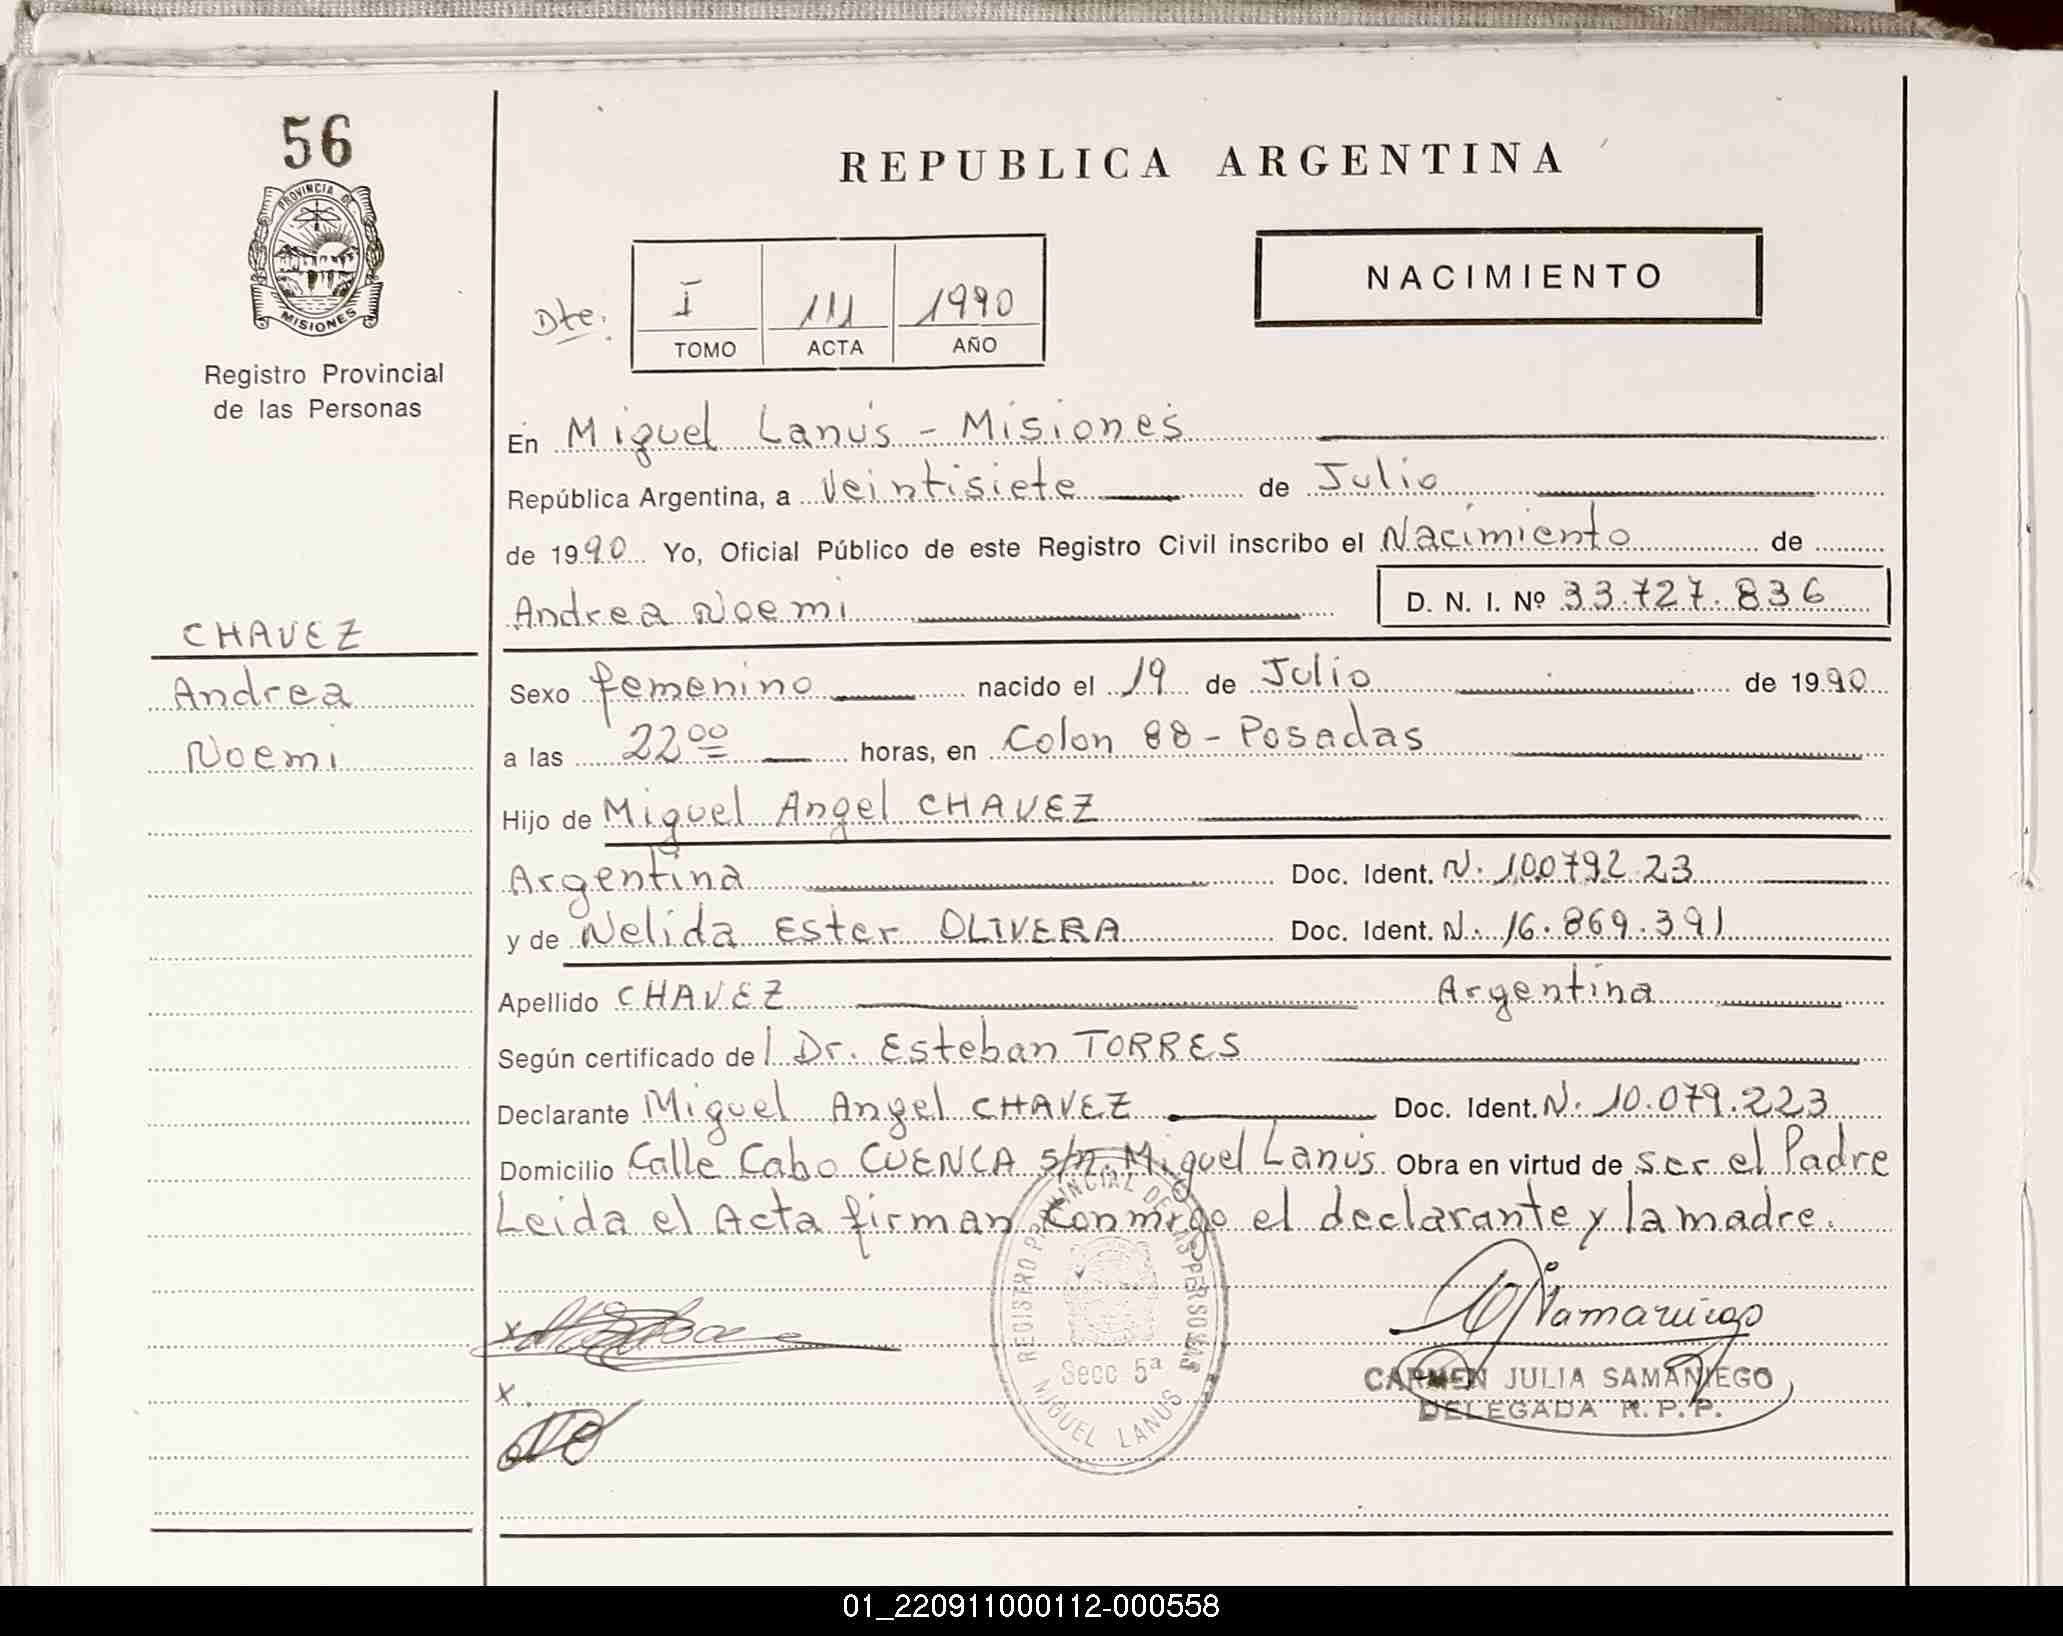 56
PROVINCIA DE
MISIONES
Registro Provincial
de las Personas
CHAVEZ
Andrea
Noemi
REPUBLICA ARGENTINA
NACIMIENTO
Dte.
I 111 1990
TOMO ACTA AÑO
En Miguel Lanús - Misiones
República Argentina, a veintisiete de Julio
de 1990 Yo, Oficial Público de este Registro Civil inscribo el Nacimiento de
Andrea Noemi D. N. I. Nº 33.727.836
Sexo femenino nacido el 19 de Julio de 1990
a las 22 00 horas, en Colon 88 - Posadas
Hijo de Miguel Angel CHAVEZ
Argentina Doc. Ident. N. 100792 23
y de Nelida Ester OLIVERA Doc. Ident. N. 16.869.391
Apellido CHAVEZ Argentina
Según certificado de l Dr. Esteban TORRES
Declarante Miguel Angel CHAVEZ Doc. Ident. N. 10.079.223
Domicilio Calle Cabo CUENCA s/n. Miguel Lanús Obra en virtud de ser el Padre
Leida el Acta firman conmigo el declarante y la madre.
REGISTRO PROVINCIAL DE LAS PERSONAS
Secc 5ª
MIGUEL LANUS
x
x
CARMEN JULIA SAMANIEGO
DELEGADA R. P. P.
01_220911000112-000558